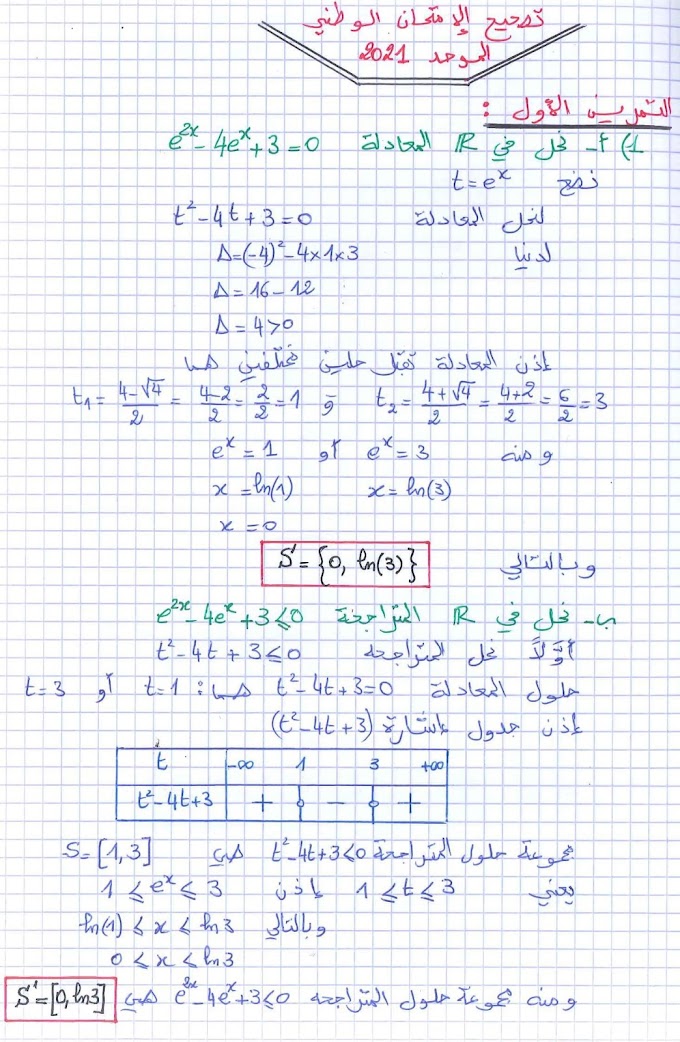 تصحيح الإمتحان الوطني
الموحد 2021
التمرين الأول :
1) أ- نحل في ℝ المعادلة e^{2x} - 4e^x + 3 = 0
نضع t = e^x
لنحل المعادلة t² - 4t + 3 = 0
لدينا Δ = (-4)² - 4×1×3
Δ = 16 - 12
Δ = 4 > 0
إذن المعادلة تقبل حلين مختلفين هما
t₁ = (4-√4)/2 = (4-2)/2 = 2/2 = 1 و t₂ = (4+√4)/2 = (4+2)/2 = 6/2 = 3
ومنه e^x = 3 أو e^x = 1
x = ln(1) x = ln(3)
x = 0
وبالتالي S = {0, ln(3)}
ب- نحل في ℝ المتراجحة e^{2x} - 4e^x + 3 ≤ 0
أوّلاً نحل المتراجحة t² - 4t + 3 ≤ 0
حلول المعادلة t² - 4t + 3 = 0 هما: t = 1 أو t = 3
إذن جدول إشارة (t² - 4t + 3)
t -∞ 1 3 +∞
t² - 4t + 3 + 0 - 0 +
مجموعة حلول المتراجحة t² - 4t + 3 < 0 هي S = [1, 3]
يعني 1 ≤ t ≤ 3 إذن 1 ≤ e^x ≤ 3
وبالتالي ln(1) ≤ x ≤ ln 3
0 ≤ x ≤ ln 3
ومنه مجموعة حلول المتراجحة e^{2x} - 4e^x + 3 ≤ 0 هي S = [0, ln 3]